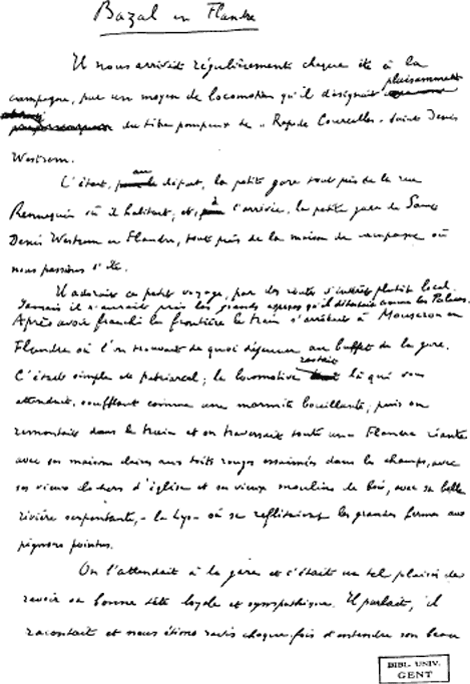 Bazal en Flandre
Il nous arrivait régulièrement chaque été à la
plaisamment
campagne, par un moyen de locomotion qu'il désignait
du titre pompeux de « Rapide Courcelles-Saint Denis
Westrem.
au
C'était, départ, la petite gare tout près de la rue
à
Rennequin où il habitait; et, l'arrivée, la petite gare de Saint
Denis Westrem en Flandre, tout près de la maison de campagne où
nous passions l'été.
Il adorait ce petit voyage, par des routes d'intérêt plutôt local.
Jamais il n'aurait pris les grands express qu'il détestait comme les Palaces.
Après avoir franchi la frontière le train s'arrêtait à Mouscron en
Flandre où l'on trouvait de quoi déjeuner au buffet de la gare.
restait
C'était simple et patriarcal; la locomotive là qui vous
attendait, soufflant comme une marmite bouillante; puis on
remontait dans le train et on traversait toute une Flandre riante
avec ses maisons claires aux toits rouges essaimées dans les champs, avec
ses vieux clochers d'église et ses vieux moulins de bois, avec sa belle
rivière serpentante, - la Lys - où se reflétaient les grandes fermes aux
pignons pointus.
On l'attendait à la gare et c'était un tel plaisir de
revoir sa bonne tête loyale et sympathique. Il parlait, il
racontait et nous étions ravis chaque fois d'entendre son beau
BIBL. UNIV.
GENT